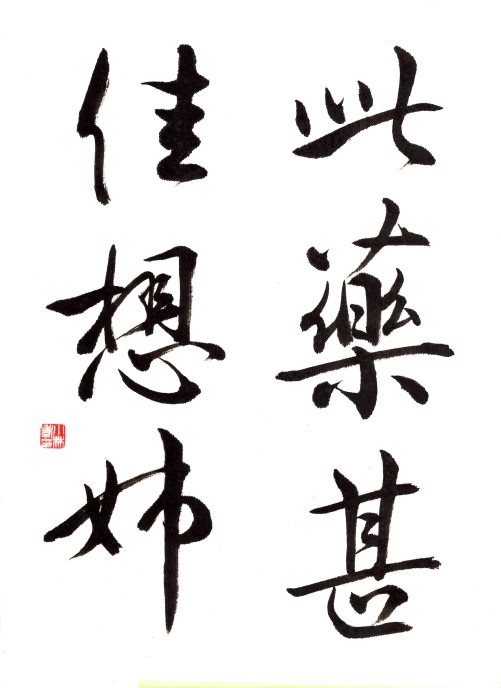 此藥甚
佳想姉